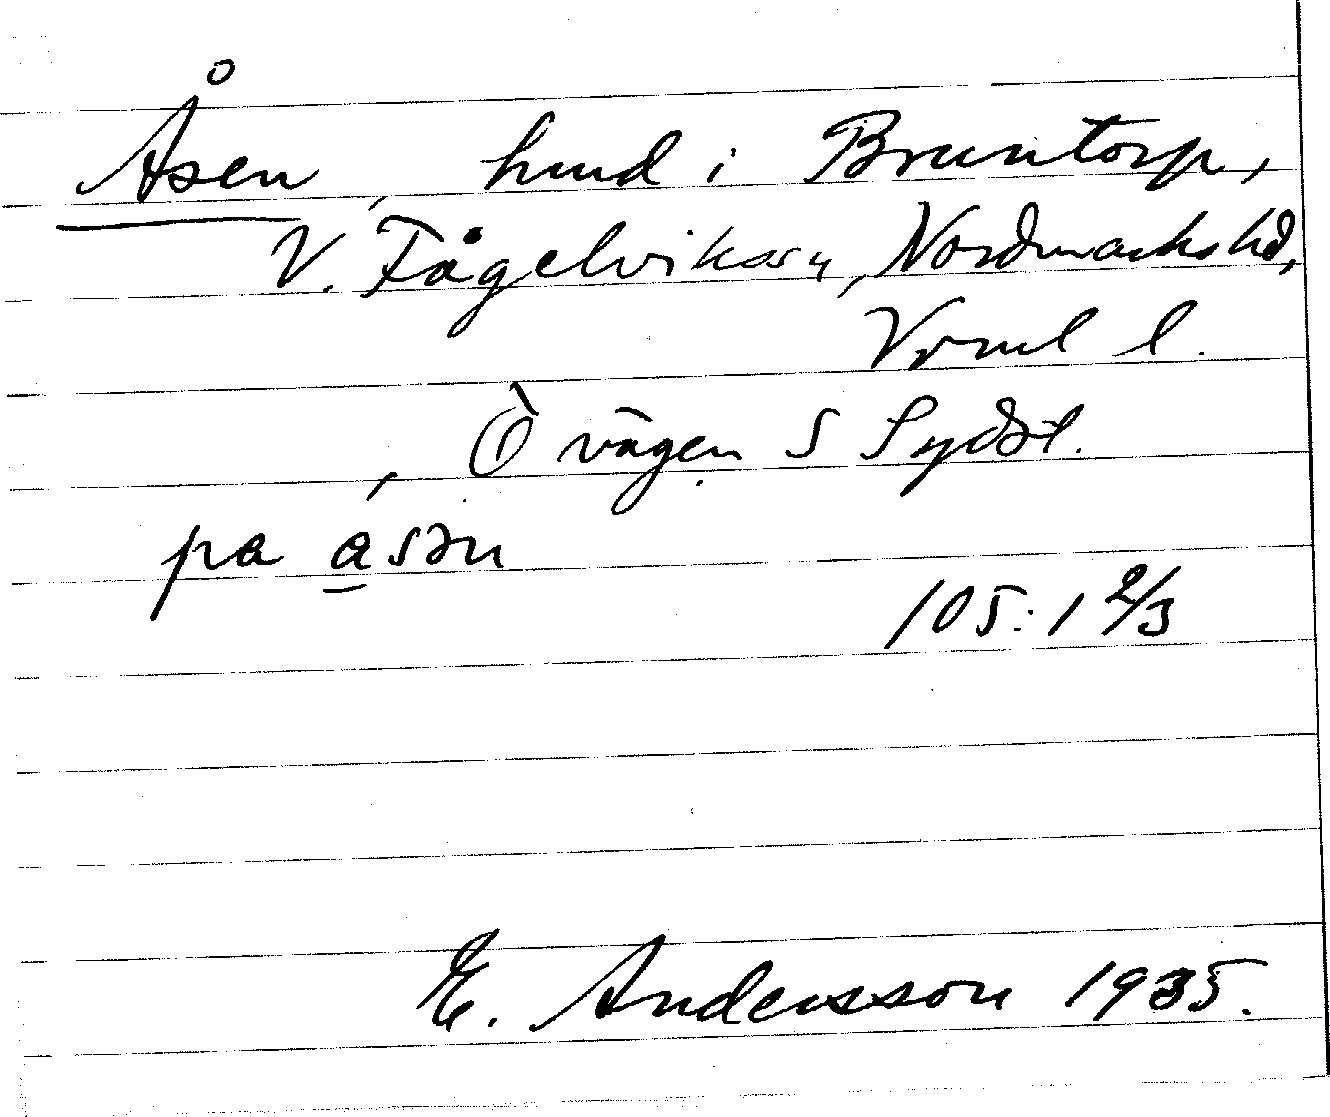 Åsen, hmd i Bruntorp,
V. Fågelviks sn, Nordmarks hd,
Vrml l.
, Ö vägen S Sydöl.
pa a̲sən
105:1 2/3
E. Andersson 1935.